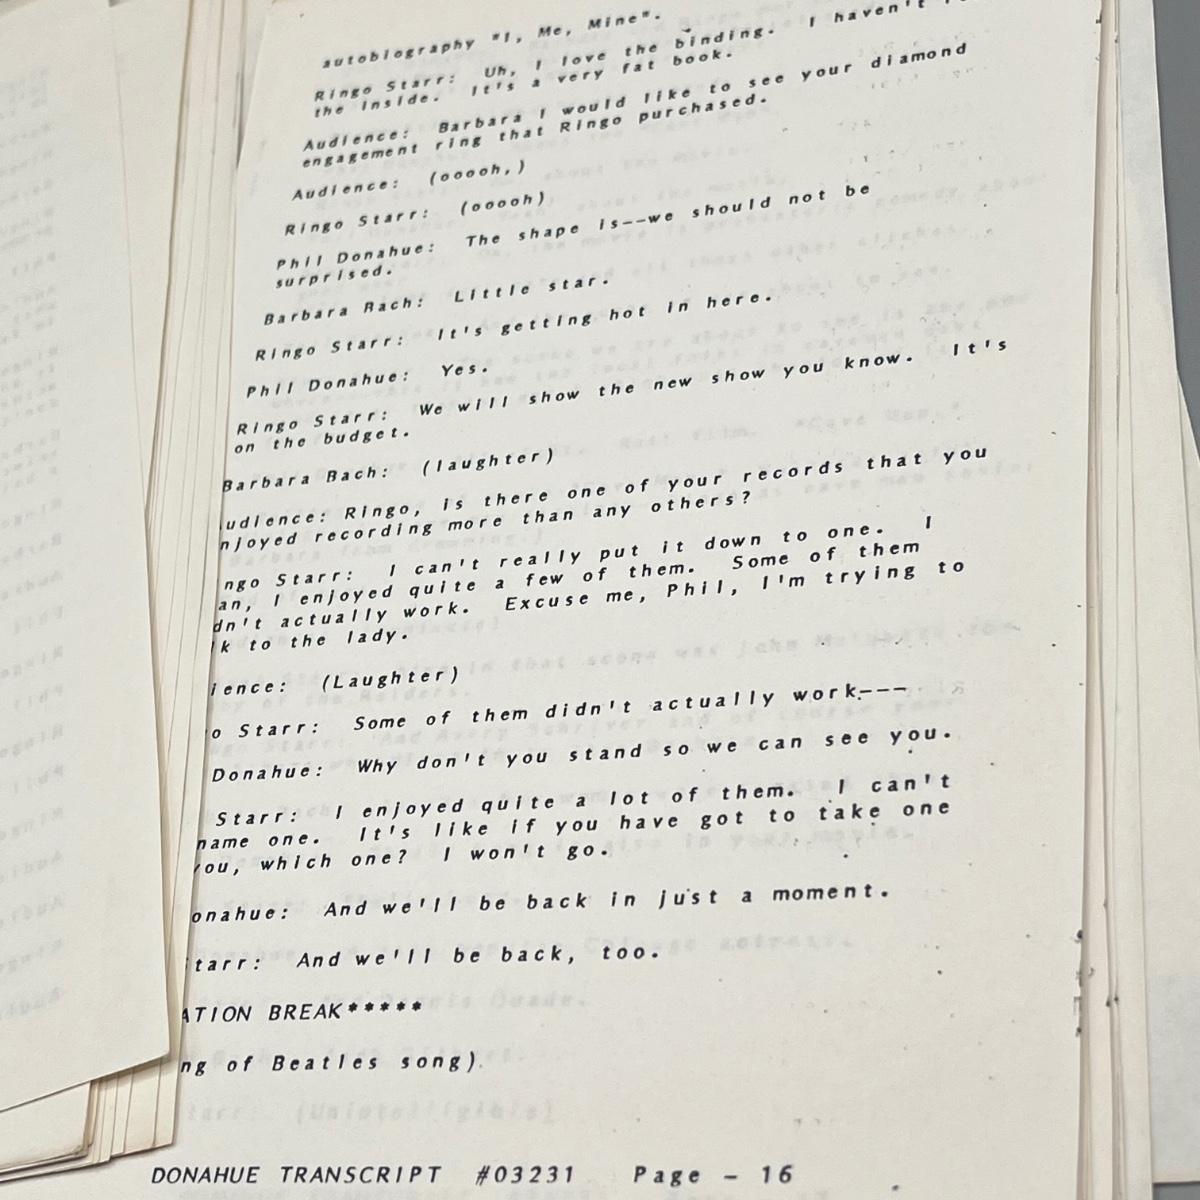 autobiography "I, Me, Mine".
Ringo Starr: Uh, I love the binding. I haven't
the inside. It's a very fat book.
Audience: Barbara I would like to see your diamond
engagement ring that Ringo purchased.
Audience: (ooooh,)
Ringo Starr: (ooooh)
Phil Donahue: The shape is--we should not be
surprised.
Barbara Bach: Little star.
Ringo Starr: It's getting hot in here.
Phil Donahue: Yes.
Ringo Starr: We will show the new show you know. It's
on the budget.
Barbara Bach: (laughter)
udience: Ringo, is there one of your records that you
njoyed recording more than any others?
ngo Starr: I can't really put it down to one. I
an, I enjoyed quite a few of them. Some of them
dn't actually work. Excuse me, Phil, I'm trying to
lk to the lady.
ience: (Laughter)
o Starr: Some of them didn't actually work---
Donahue: Why don't you stand so we can see you.
Starr: I enjoyed quite a lot of them. I can't
name one. It's like if you have got to take one
ou, which one? I won't go.
onahue: And we'll be back in just a moment.
tarr: And we'll be back, too.
ATION BREAK*****
ng of Beatles song)
DONAHUE TRANSCRIPT #03231 Page - 16